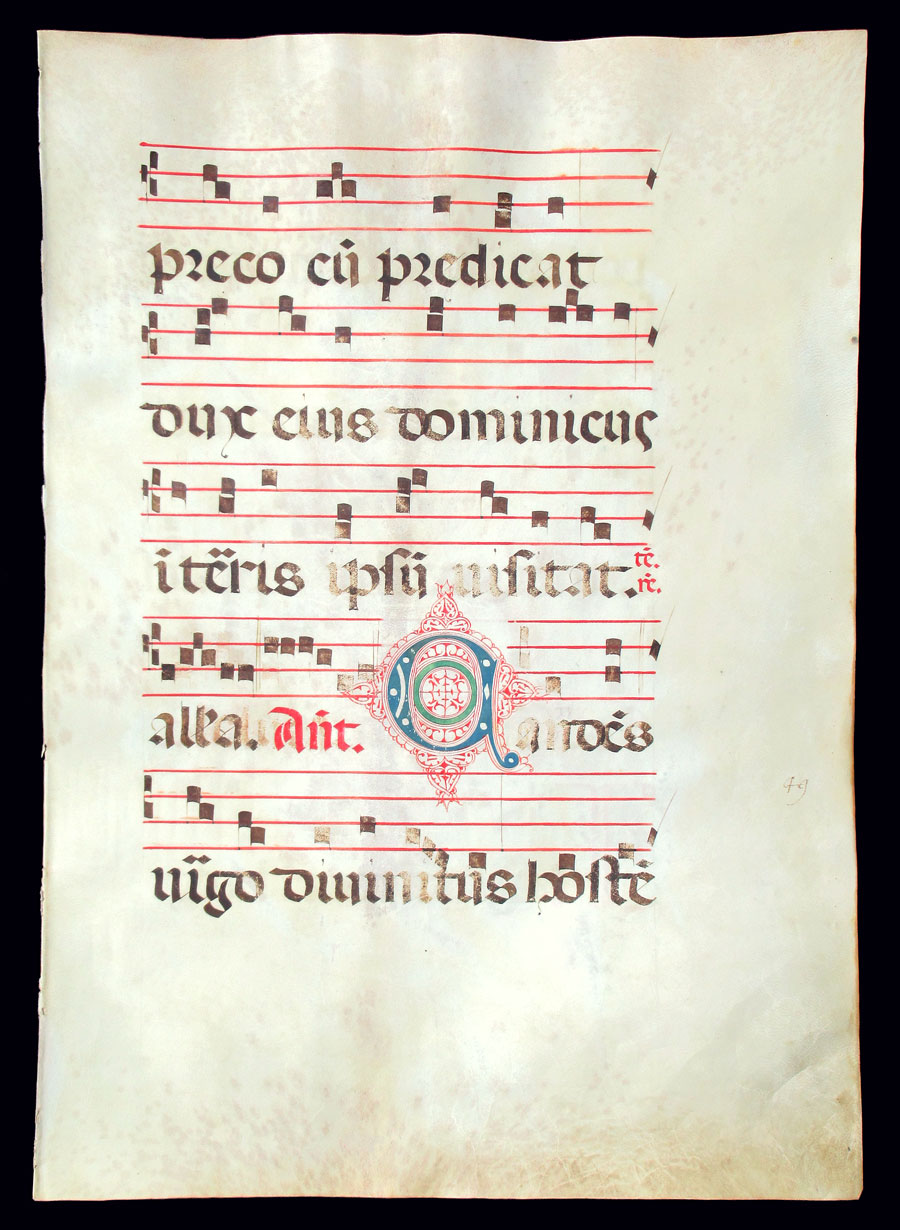 preco cū predicat
dux eius dominicus
itēris ipsū uisitat. tē. rē.
alla. Añt. Q andēs
uīgo diuinitus hostē
49